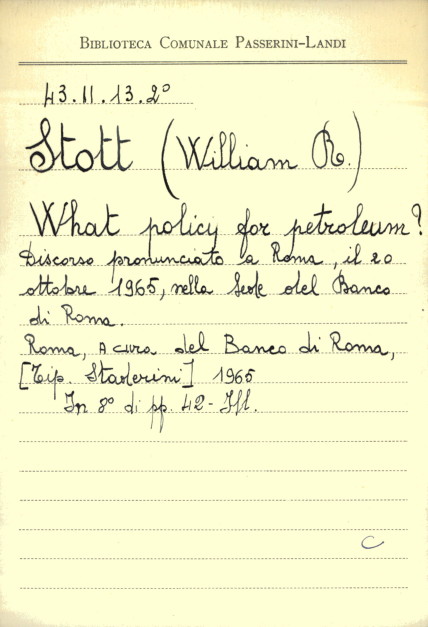 BIBLIOTECA COMUNALE PASSERINI-LANDI
43.II.13.2°
Stott (William R.)
What policy for petroleum?
Discorso pronunciato a Roma, il 20
ottobre 1965, nella Sede del Banco
di Roma.
Roma, A cura del Banco di Roma,
[Tip. Staderini] 1965
In 8° di pp. 42 - Ill.
C